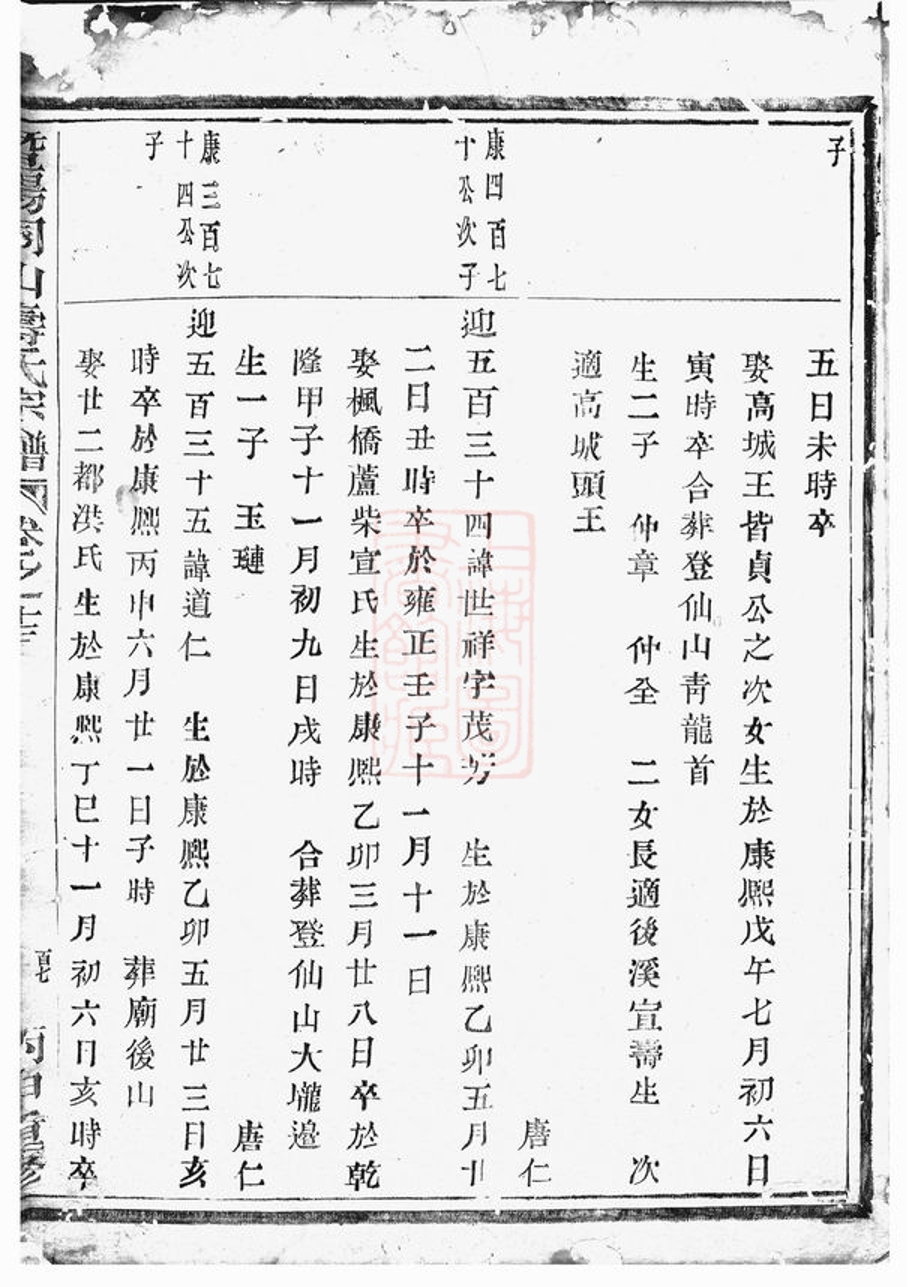 子
五日未時卒
娶高城王皆貞公之次女生於康熙戊午七月初六日
寅時卒合葬登仙山青龍首
生二子 仲章 仲全 二女長適後溪宣壽生 次
適高城頭王
唐仁
康四百七
十公次子
迎五百三十四諱世祥字茂芳 生於康熙乙卯五月廿
二日丑時卒於雍正壬子十一月十一日
娶楓橋蘆柴宣氏生於康熙乙卯三月廿八日卒於乾
隆甲子十一月初九日戌時 合葬登仙山大壠邉
生一子 玉璉 唐仁
康三百七
十四公次
子
迎五百三十五諱道仁 生於康熙乙卯五月廿三日亥
時卒於康熙丙申六月廿一日子時 葬廟後山
娶廿二都洪氏生於康熙丁巳十一月初六日亥時卒
暨陽同山壽氏宗譜 卷之十三
百七
丙申重修